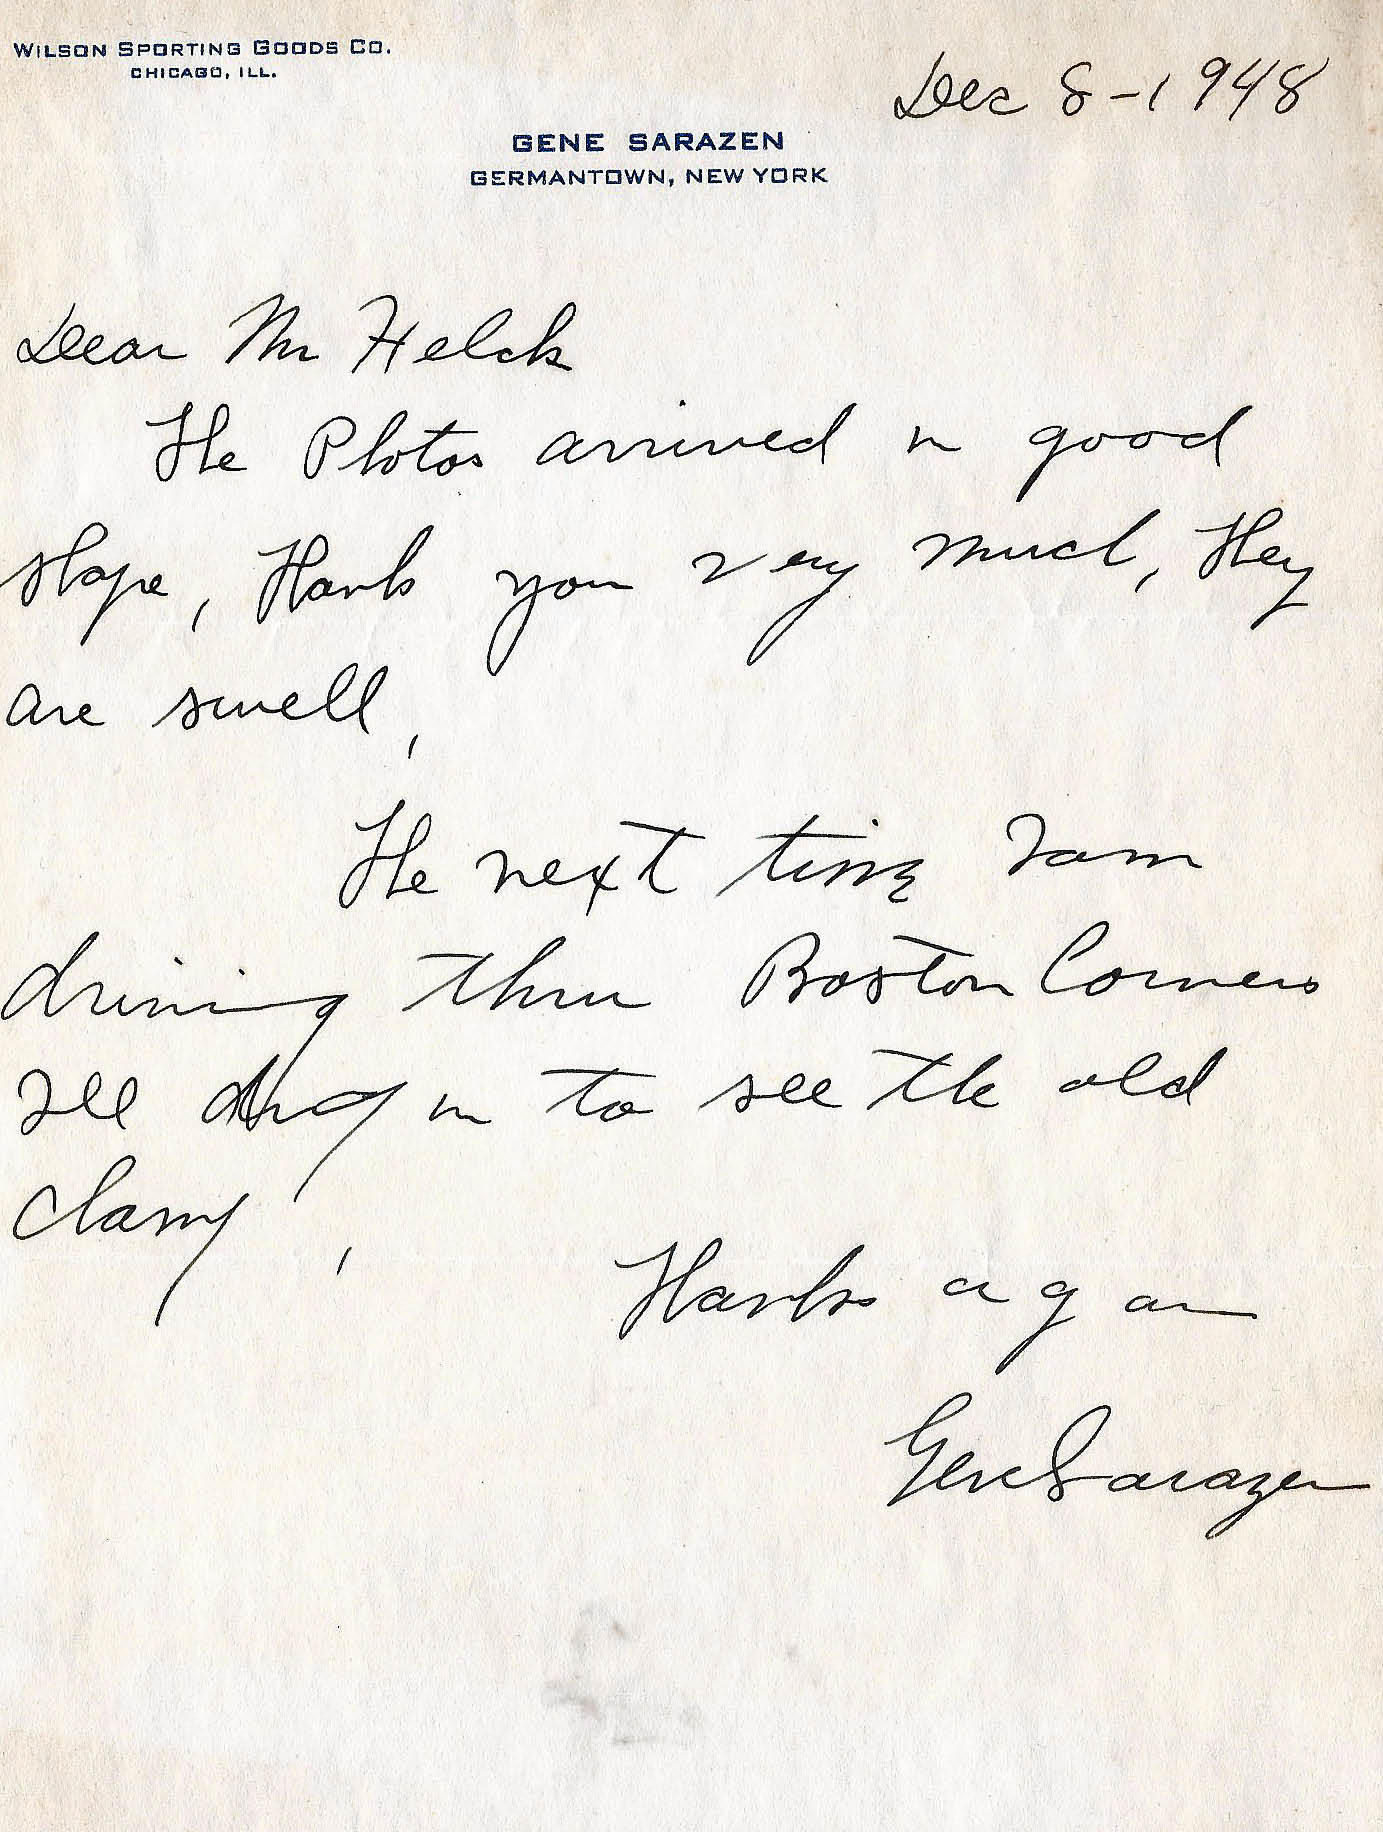 WILSON SPORTING GOODS CO.
CHICAGO, ILL.
Dec 8-1948
GENE SARAZEN
GERMANTOWN, NEW YORK
Dear Mr Helck
The Photos arrived in good
shape, Thank you very much, They
are swell,
The next time I am
driving thru Boston Corners
I'll drop in to see the old
champ,
Thanks again
Gene Sarazen